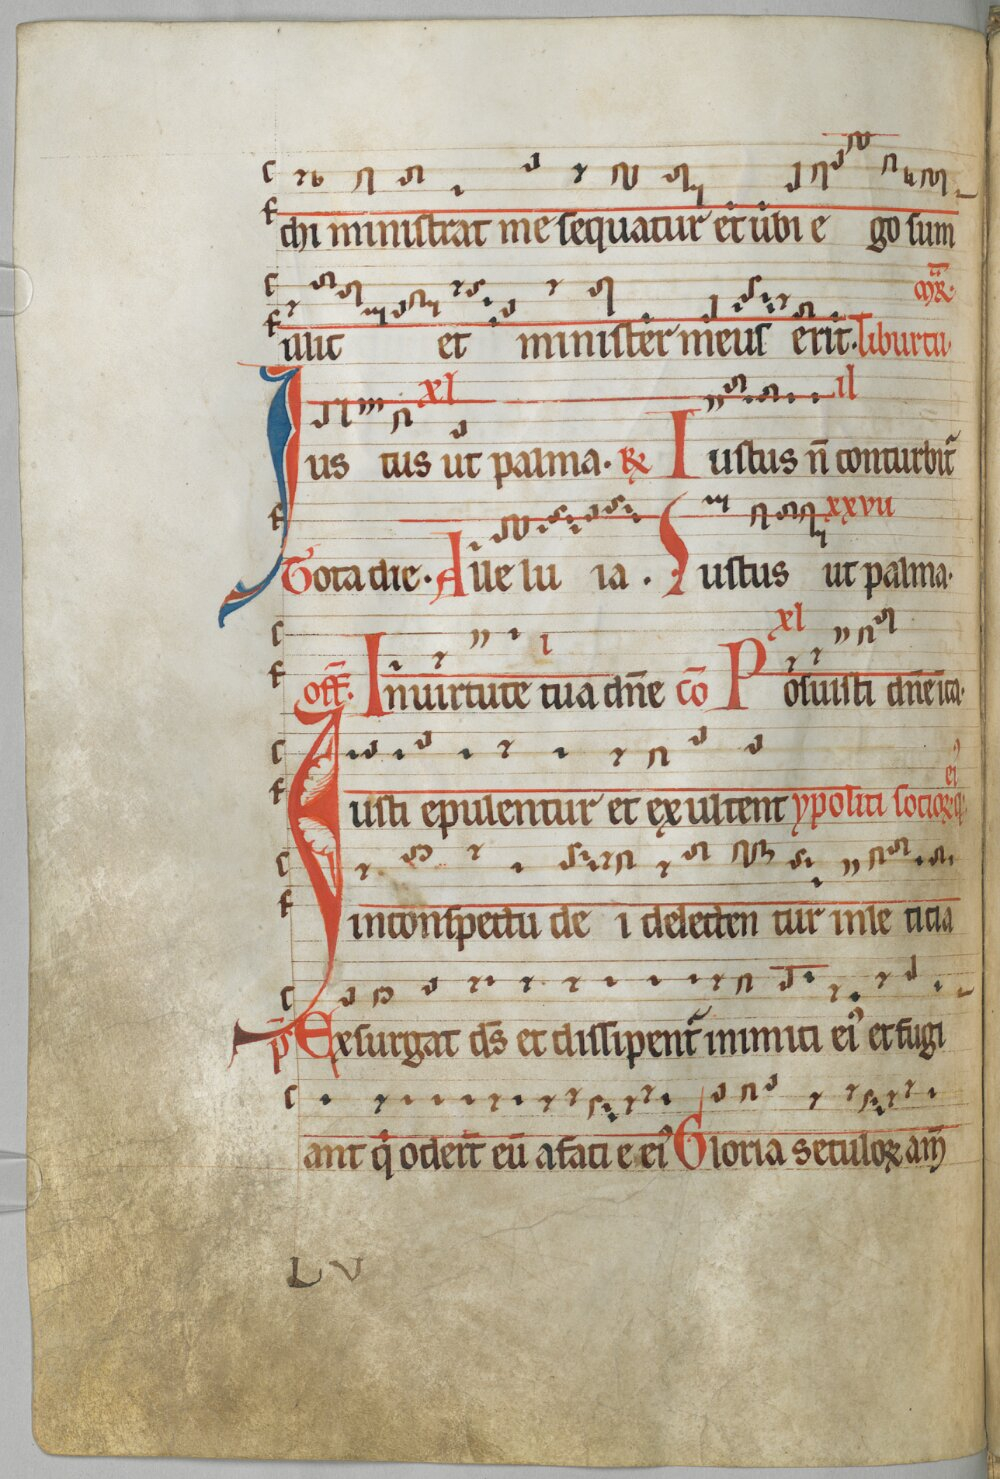 chi ministrat me sequatur et ubi e go sum
illic et minister meus erit. Tiburtii
mr̄.
xl il
Ius tus ut palma. R Iustus n̄ conturbit᷑
xxvii
Tota die. Alle lu ia. Iustus ut palma.
xl l
off̄. In virtute tua dn̄e cō Posuisti dn̄e i ca.
ei᾽
Iusti epulentur et exultent ypoliti socior̄
in conspectu de i delecten tur in le ticia
p̄ Exsurgat ds̄ et dissipent᷑ inimici ei᾽ et fugi
ant q̇ oder̄t eū a faci e ei᾽ Gloria seculoꝝ am̄
L V